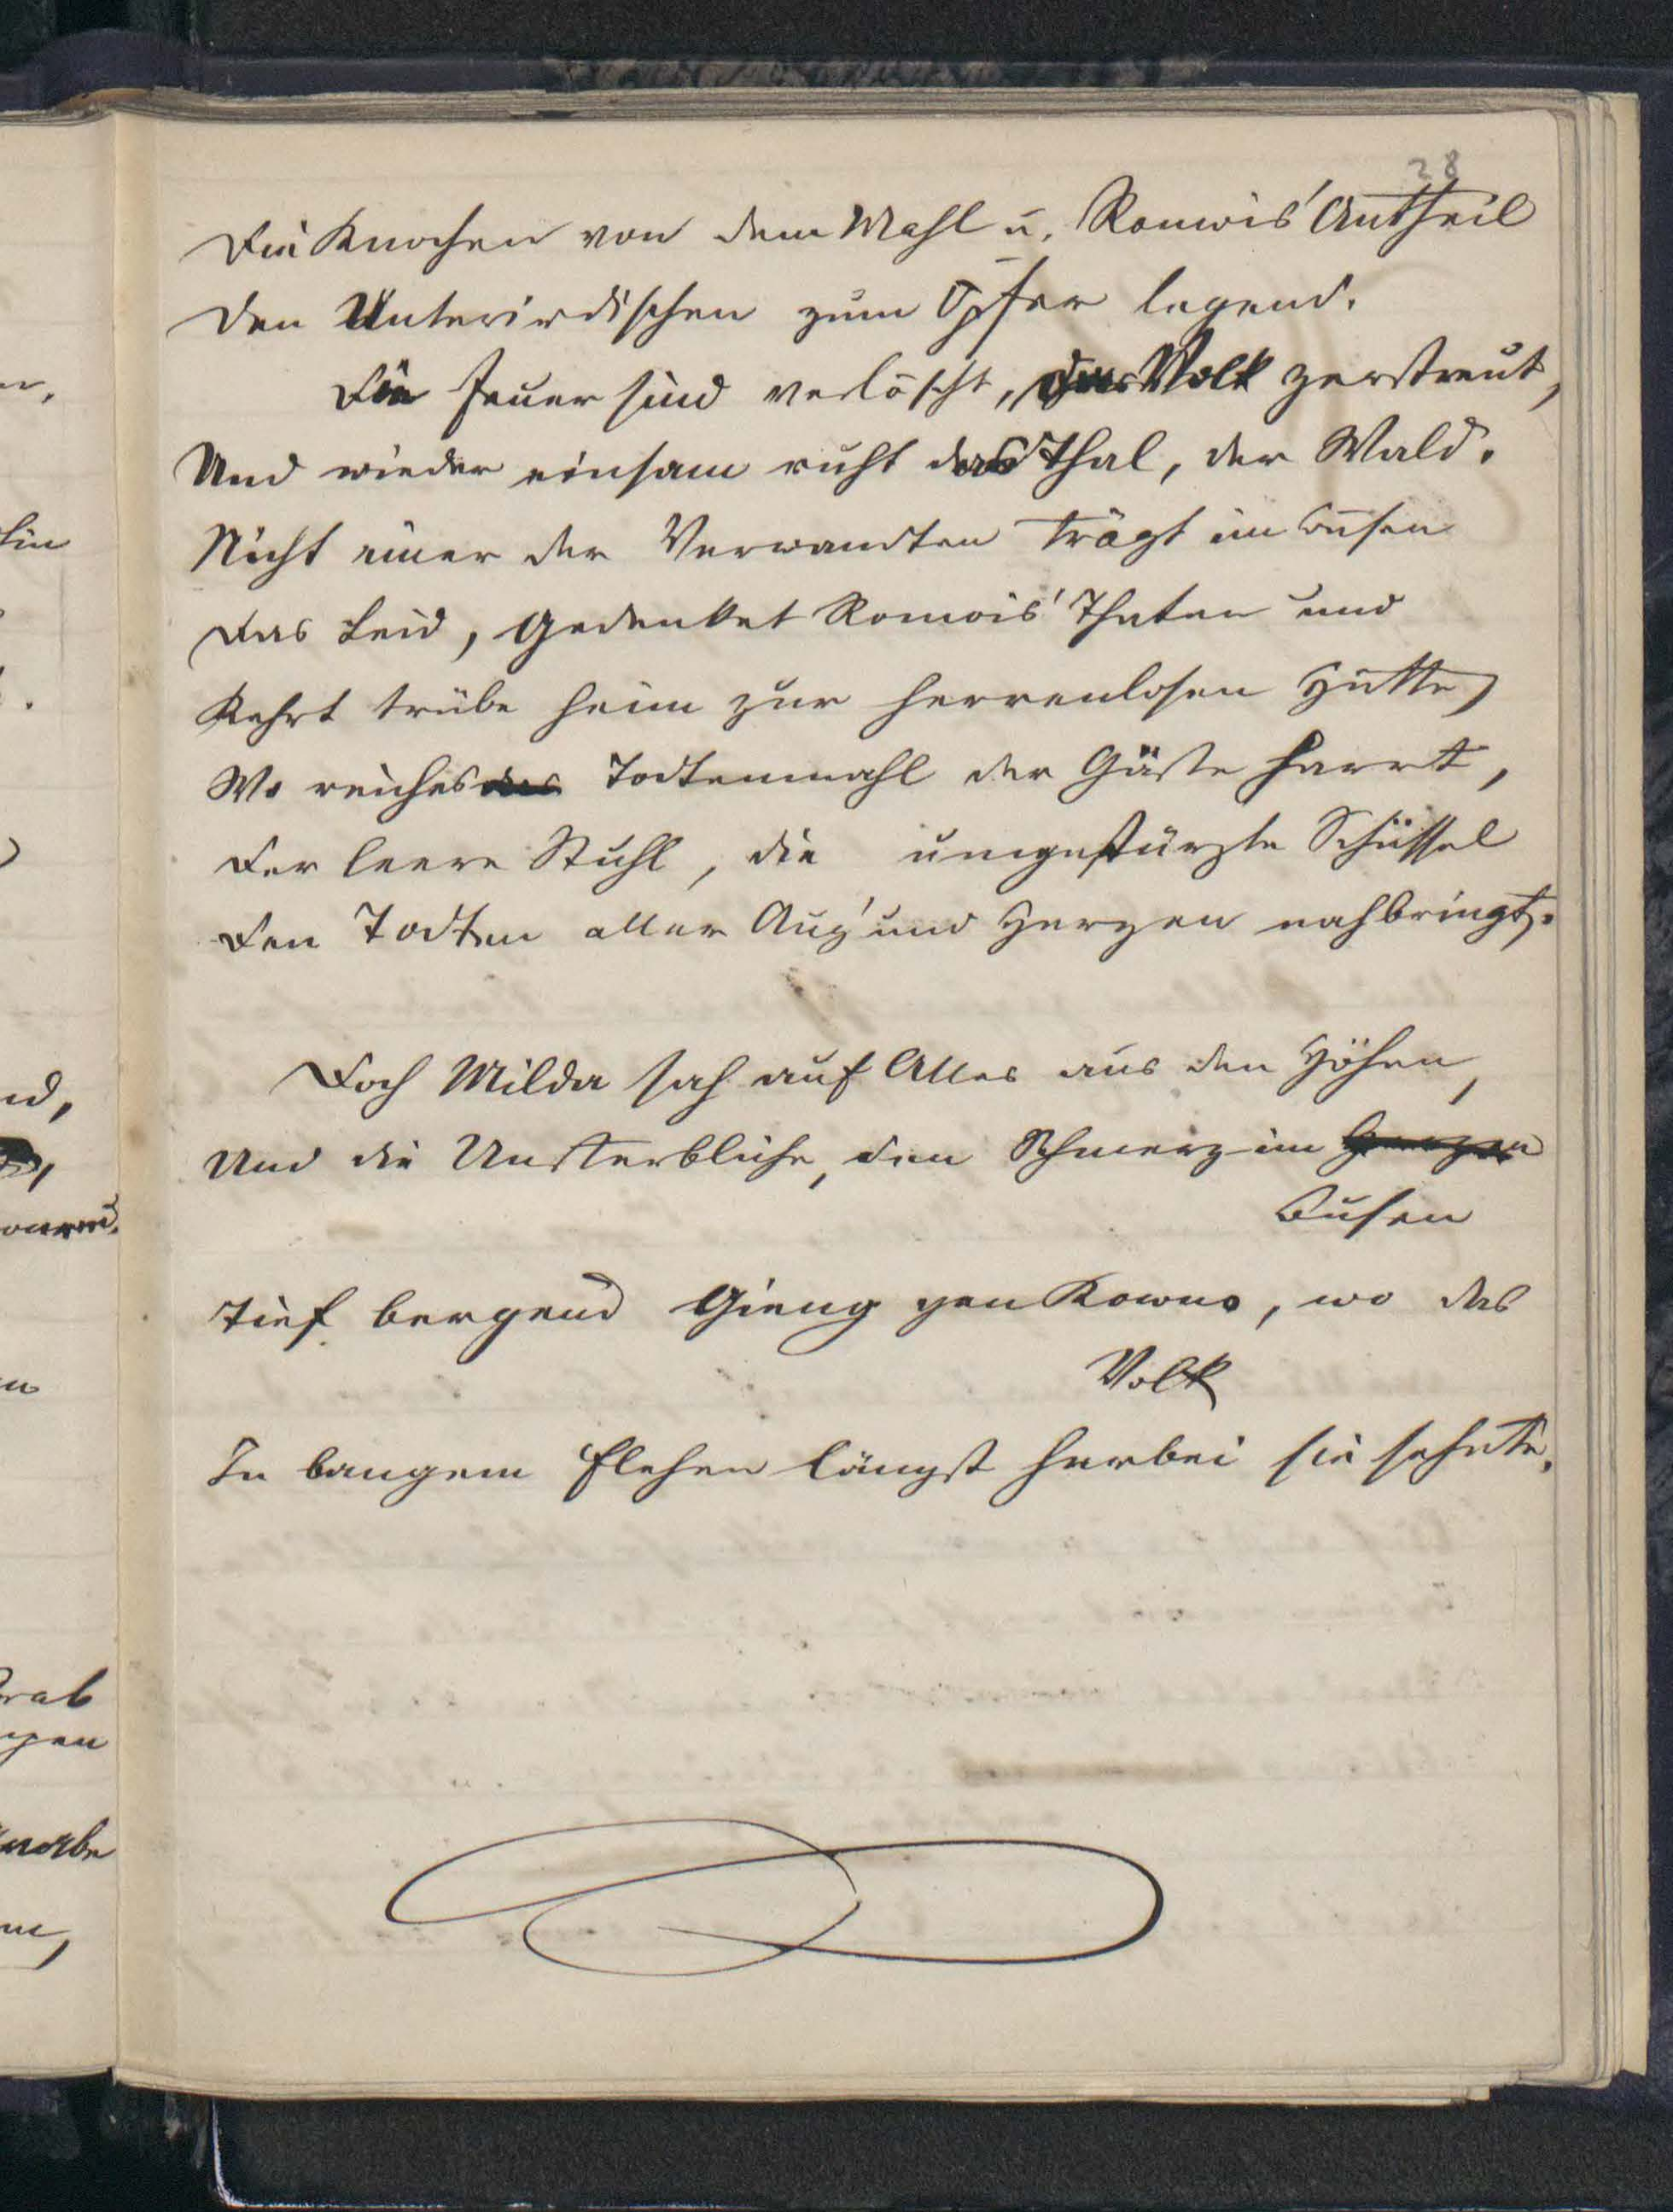 28
Die Knochen von dem Mahl u. Romois' Antheil
Den Unterirdischen zum Opfer legend.
Die Feuer sind verlöscht, das Volk zerstreut,
Und wieder einsam ruht das Thal, der Wald.
Nicht einer der Verwandten trägt im Busen
Das Leid, gedenket Romois' Thaten und
Kehrt trübe heim zur herrenlosen Hütte,
Wo reiches das Todtenmahl der Gäste harrt,
Der leere Stuhl, die umgestürzte Schüssel
Den Todten aller Aug' und Herzen nahbringt.
Doch Milda sah auf Alles aus den Höhen,
Und die Unsterbliche, den Schmerz im Herzen
Busen
Tief bergend gieng gen Kowno, wo das
Volk
In bangem Flehen längst herbei sie sehnte.